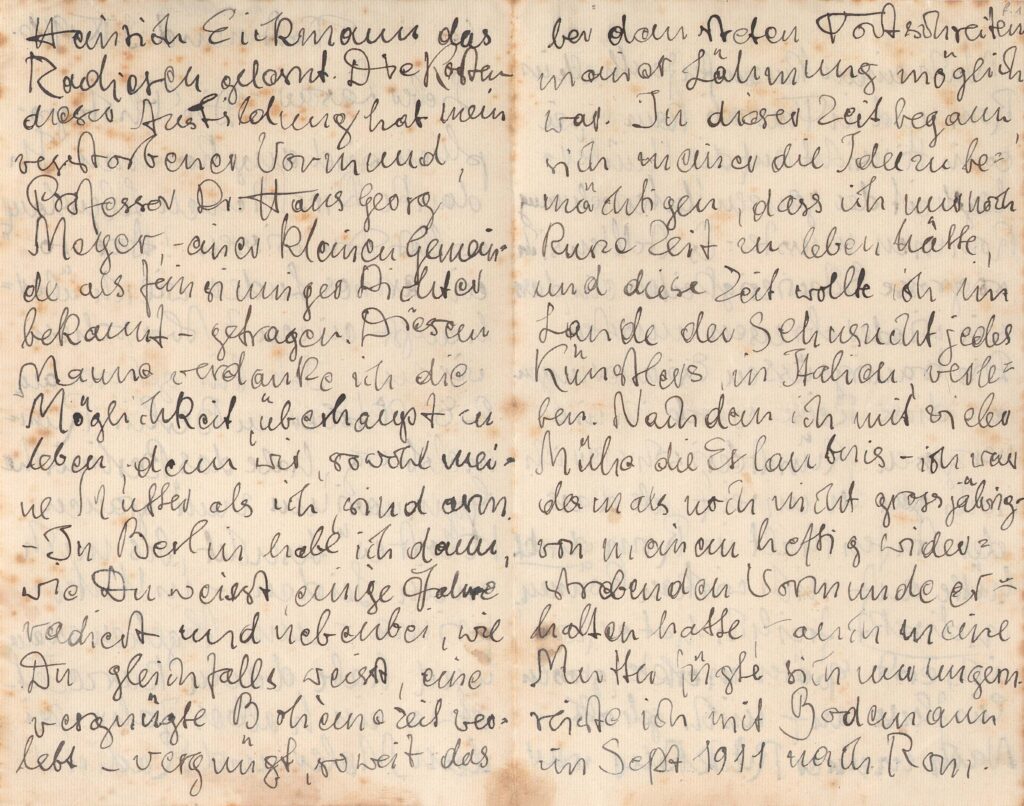 Heinrich Eickmann das
Radieren gelernt. Die Kosten
dieser Ausbildung hat mein
verstorbener Vormund,
Professor Dr. Hans Georg
Meyer, – einer kleinen Gemein-
de als feinsinniger Dichter
bekannt – getragen. Diesem
Manne verdanke ich die
Möglichkeit, überhaupt zu
leben, denn wir, sowohl mei-
ne Mutter als ich, sind arm.
– In Berlin habe ich dann,
wie Du weisst, einige Jahre
radiert und nebenbei, wie
Du gleichfalls weisst, eine
vergnügte Bohèmezeit ver-
lebt – vergnügt, soweit das
bei dem steten Fortschreiten
meiner Lähmung möglich
war. In dieser Zeit begann
sich meiner die Idee zu be=
mächtigen, dass ich nur noch
kurze Zeit zu leben hätte,
und diese Zeit wollte ich im
Lande der Sehnsucht jedes
Künstlers, in Italien, verle=
ben. Nachdem ich mit vieler
Mühe die Erlaubnis – ich war
damals noch nicht grossjährig –
von meinem heftig wider=
strebenden Vormunde er=
halten hatte – auch meine
Mutter fügte sich nur ungern.
reiste ich mit Bodemann
im Sept 1911 nach Rom.